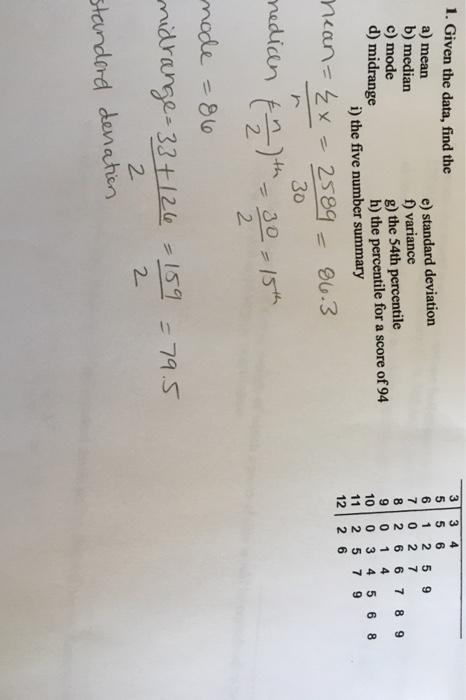 1. Given the data, find the
a) mean e) standard deviation
b) median f) variance
c) mode g) the 54th percentile
d) midrange h) the percentile for a score of 94
i) the five number summary
3 | 3 4
5 | 5 6
6 | 1 2 5 9
7 | 0 2 7
8 | 2 6 6 7 8 9
9 | 0 1 4
10 | 0 3 4 5 6 8
11 | 2 5 7 9
12 | 2 6
mean = Σx/n = 2589/30 = 86.3
median (n/2)th = 30/2 = 15th
mode = 86
midrange = 33+126/2 = 159/2 = 79.5
standard deviation